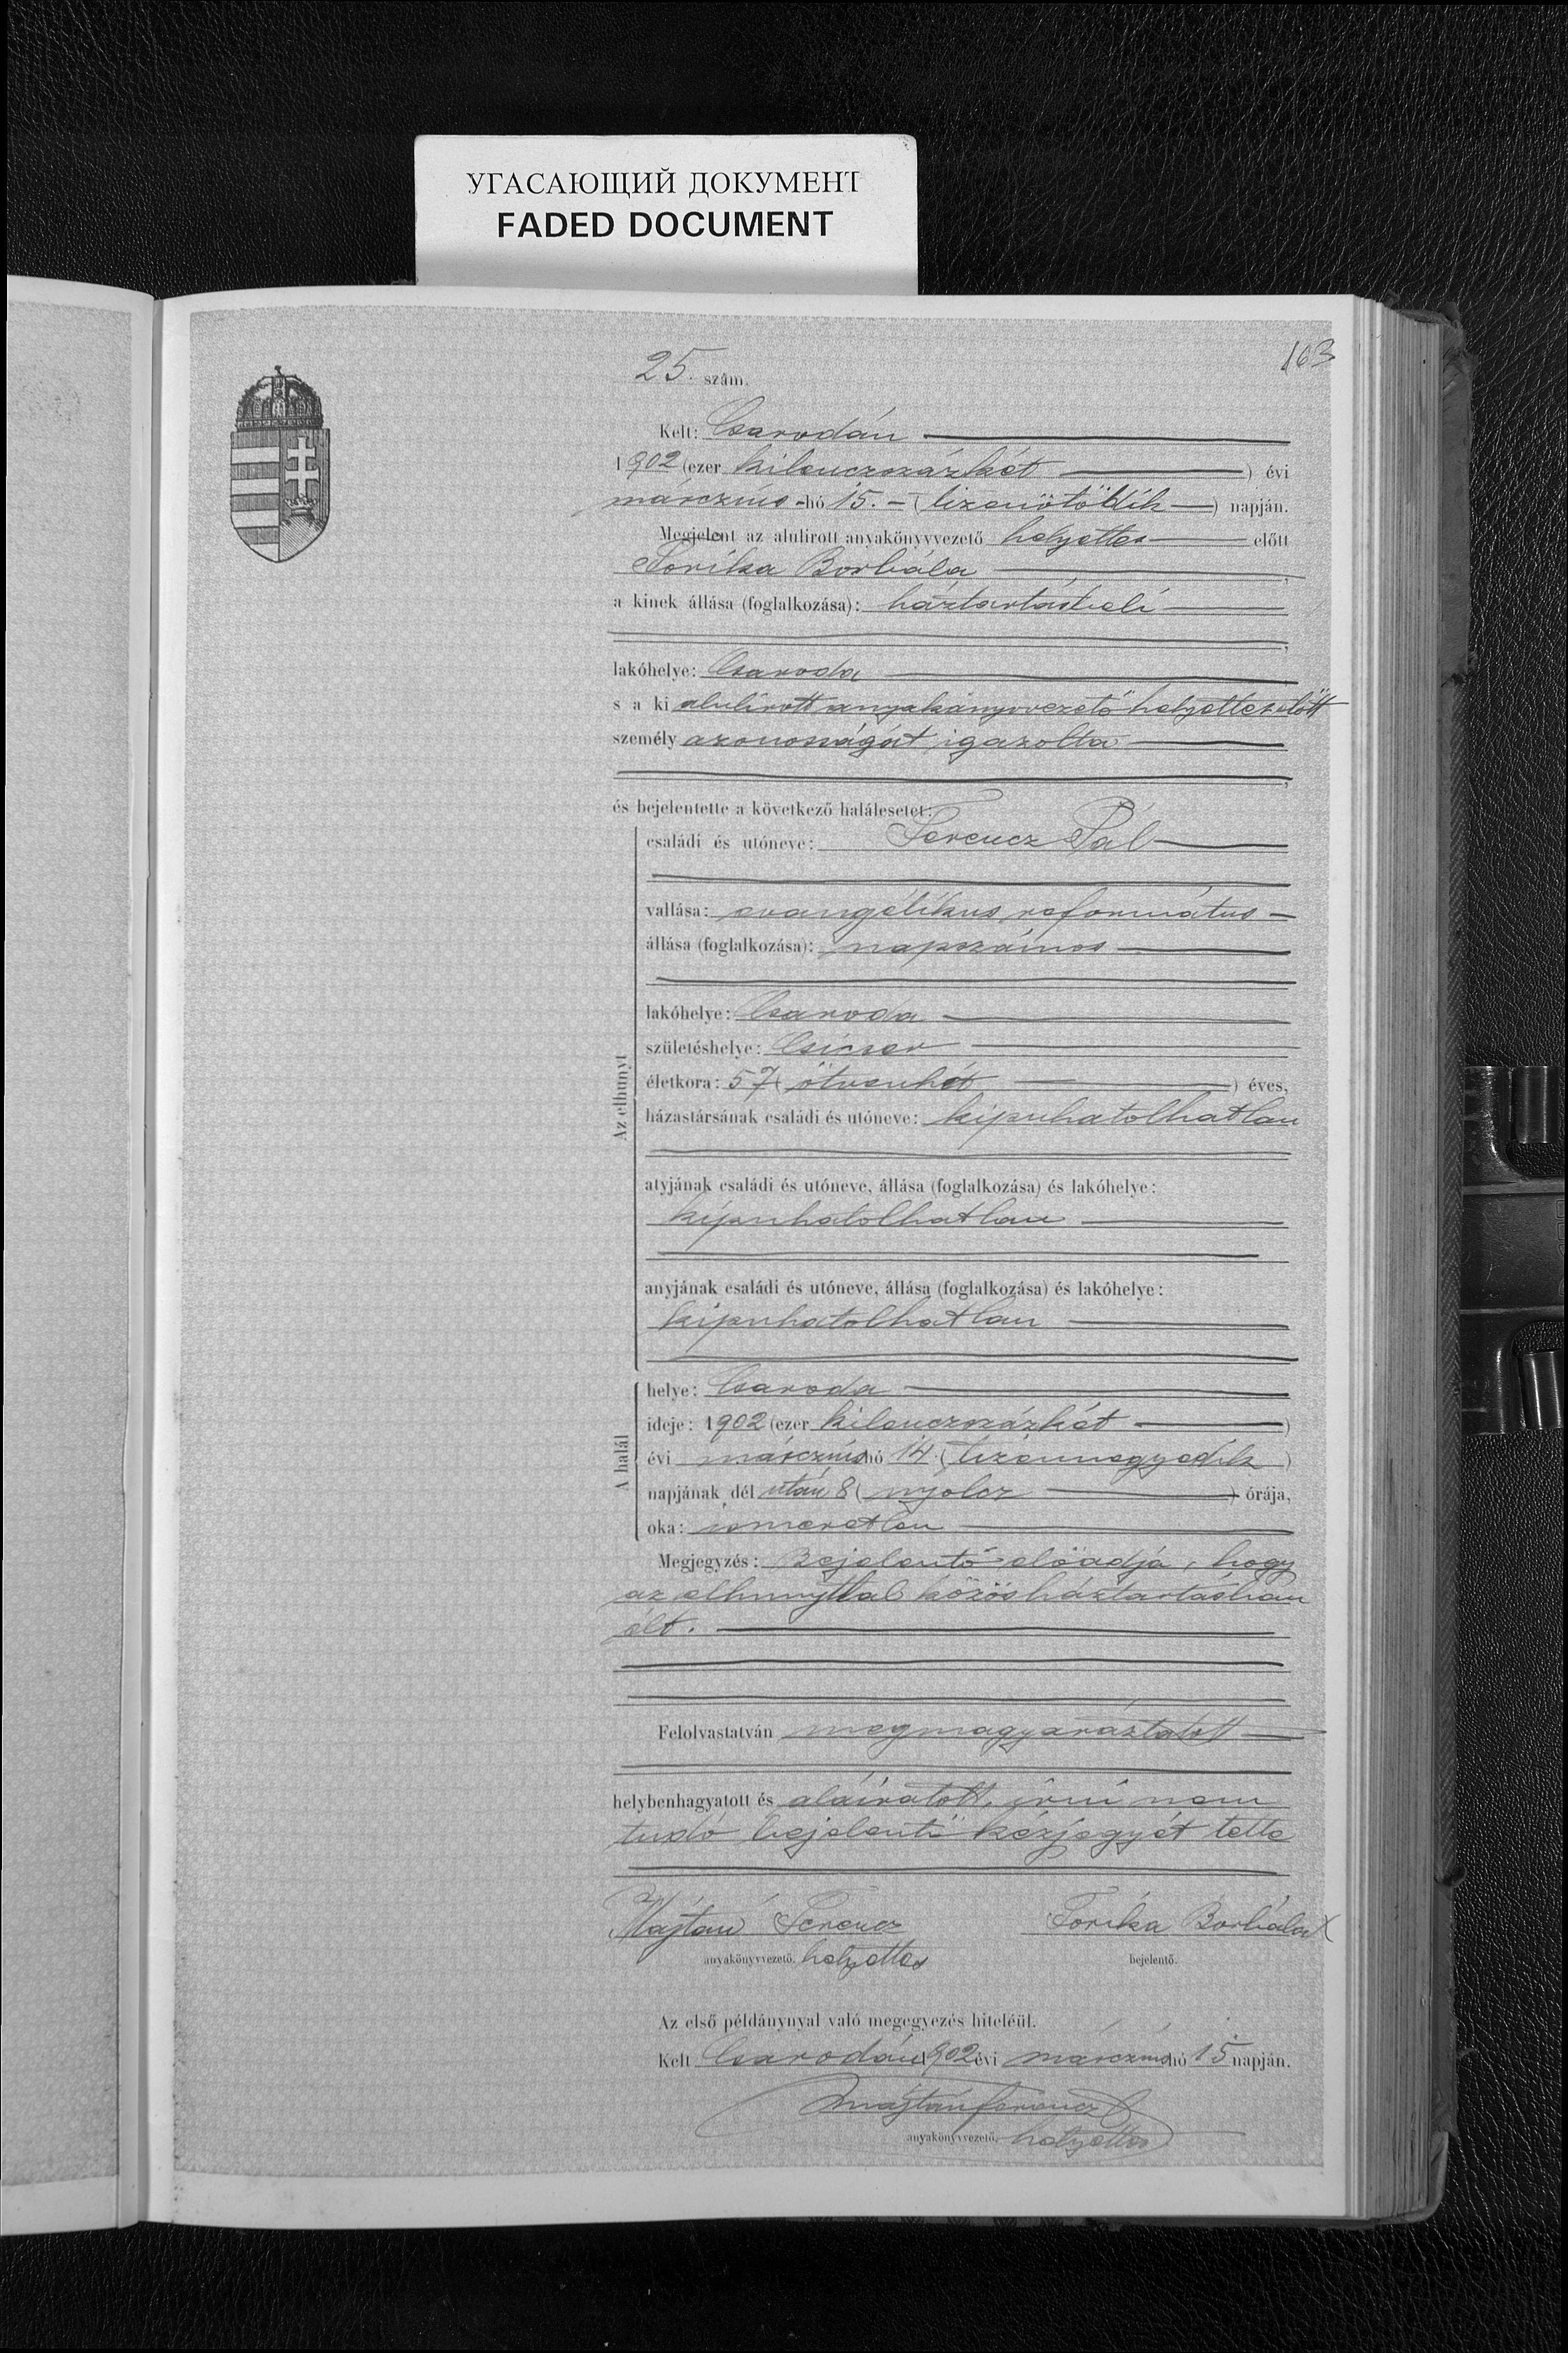 УГАСАЮЩИЙ ДОКУМЕНТ
FADED DOCUMENT
163
25. szám.
Kelt: Csarodán
1902 (ezer kilenczszázkét ) évi
márczius -hó 15. - ( tizenötödik ) napján.
Megjelent az alulirott anyakönyvvezető helyettes előtt
Torika Borbála ,
a kinek állása (foglalkozása): háztartásbeli
,
lakóhelye: Csaroda
s a ki alulirott anyakönyvvezető helyettes előtt
személy azonosságát igazolta
,
és bejelentette a következő halálesetet:
Az elhunyt
családi és utóneve: Ferencz Pál
vallása: evangélikus református -
állása (foglalkozása): napszámos
lakóhelye: Csaroda
születéshelye: Csicser
életkora: 57 ( ötvenhét ) éves,
házastársának családi és utóneve: kipuhatolhatlan
atyjának családi és utóneve, állása (foglalkozása) és lakóhelye:
kipuhatolhatlan
anyjának családi és utóneve, állása (foglalkozása) és lakóhelye:
kipuhatolhatlan
A halál
helye: Csaroda
ideje: 1902 (ezer kilenczszázkét )
évi márczius hó 14 ( tizennegyedik )
napjának dél után 8 ( nyolcz ) órája,
oka: ismeretlen
Megjegyzés: Bejelentő előadja, hogy
az elhunyttal közös háztartásban
élt.
Felolvastatván megmagyaráztatott
helybenhagyatott és aláiratott, irni nem
tudó bejelentő kézjegyét tette
Majtán Ferencz Torika Borbála X
anyakönyvvezető. helyettes bejelentő.
Az első példánynyal való megegyezés hiteléül.
Kelt Csarodán 1902 évi márczius hó 15 napján.
Majtán Ferencz
anyakönyvvezető. helyettes